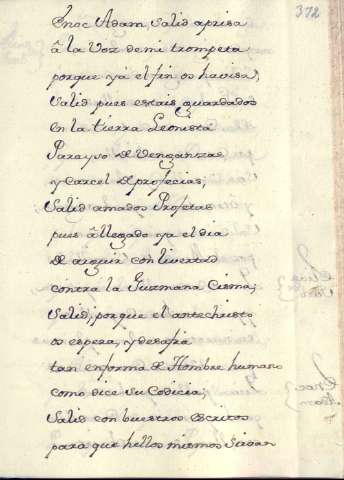 372
Enoc Adam, salid aprisa
â la voz de mi trompeta
porque yá el fin os havisa,
Salid pues estais guardados
en la tierra Leonista
Parayso de Venganzas
y Carcel de profecias,
Salid amados Profetas
pues âllegado ya el dia
de arguir con livertad
contra la Guzmana Cisma;
Salid, porque el antechristo
os espera, y desafia
tan enforma de Hombre humano
como dice su Codicia;
Salid con buestros escritos
para que hellos mismos sirvan